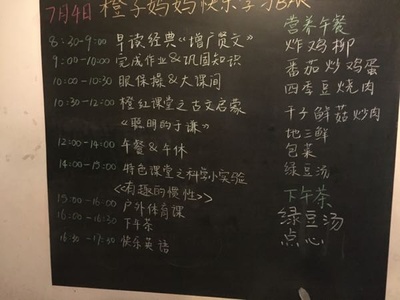 7月4日 橙子妈妈快乐学习
8:30-9:00 早读经典《增广贤文》
9:00-10:00 完成作业&巩固知识
10:00-10:30 眼保操&大课间
10:30-12:00 橙红课堂之古文启蒙
《聪明的于谦》
12:00-14:00 午餐&午休
14:00-15:00 特色课堂之科学小实验
《有趣的惯性》
15:00-16:00 户外体育课
16:00-16:30 下午茶
16:30-17:30 快乐英语
营养午餐
炸鸡柳
番茄炒鸡蛋
四季豆烧肉
干子鲜菇炒肉
地三鲜
包菜
绿豆汤
下午茶
绿豆汤
点心